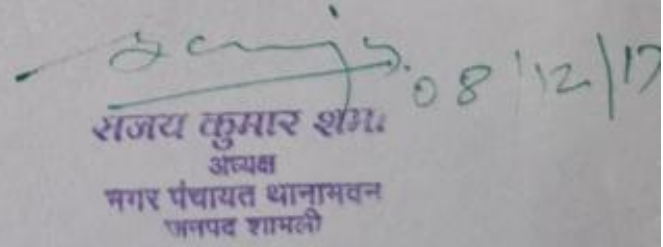 08/12/17
संजय कुमार शर्मा
अध्यक्ष
नगर पंचायत थानाभवन
जनपद शामली